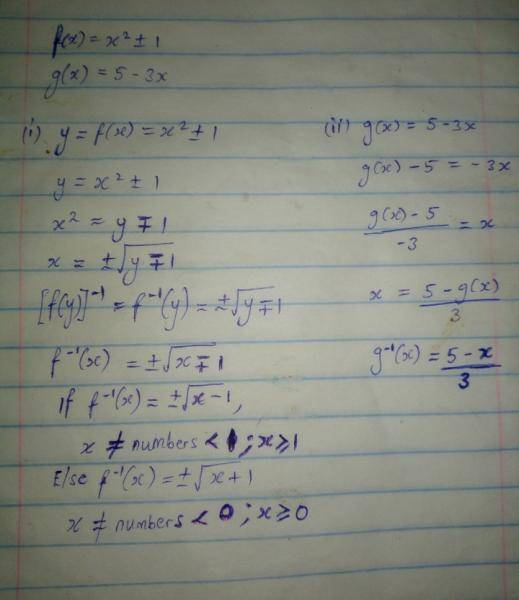 f(x) = x² ± 1
g(x) = 5 - 3x
(i) y = f(x) = x² ± 1
y = x² ± 1
x² = y ∓ 1
x = ±√(y ∓ 1)
[f(y)]⁻¹ = f⁻¹(y) = ±√(y ∓ 1)
f⁻¹(x) = ±√(x ∓ 1)
If f⁻¹(x) = ±√(x - 1),
x ≠ numbers < 1; x ≥ 1
Else f⁻¹(x) = ±√(x + 1)
x ≠ numbers < 0; x ≥ 0
(ii) g(x) = 5 - 3x
g(x) - 5 = -3x
(g(x) - 5)/-3 = x
x = (5 - g(x))/3
g⁻¹(x) = (5 - x)/3